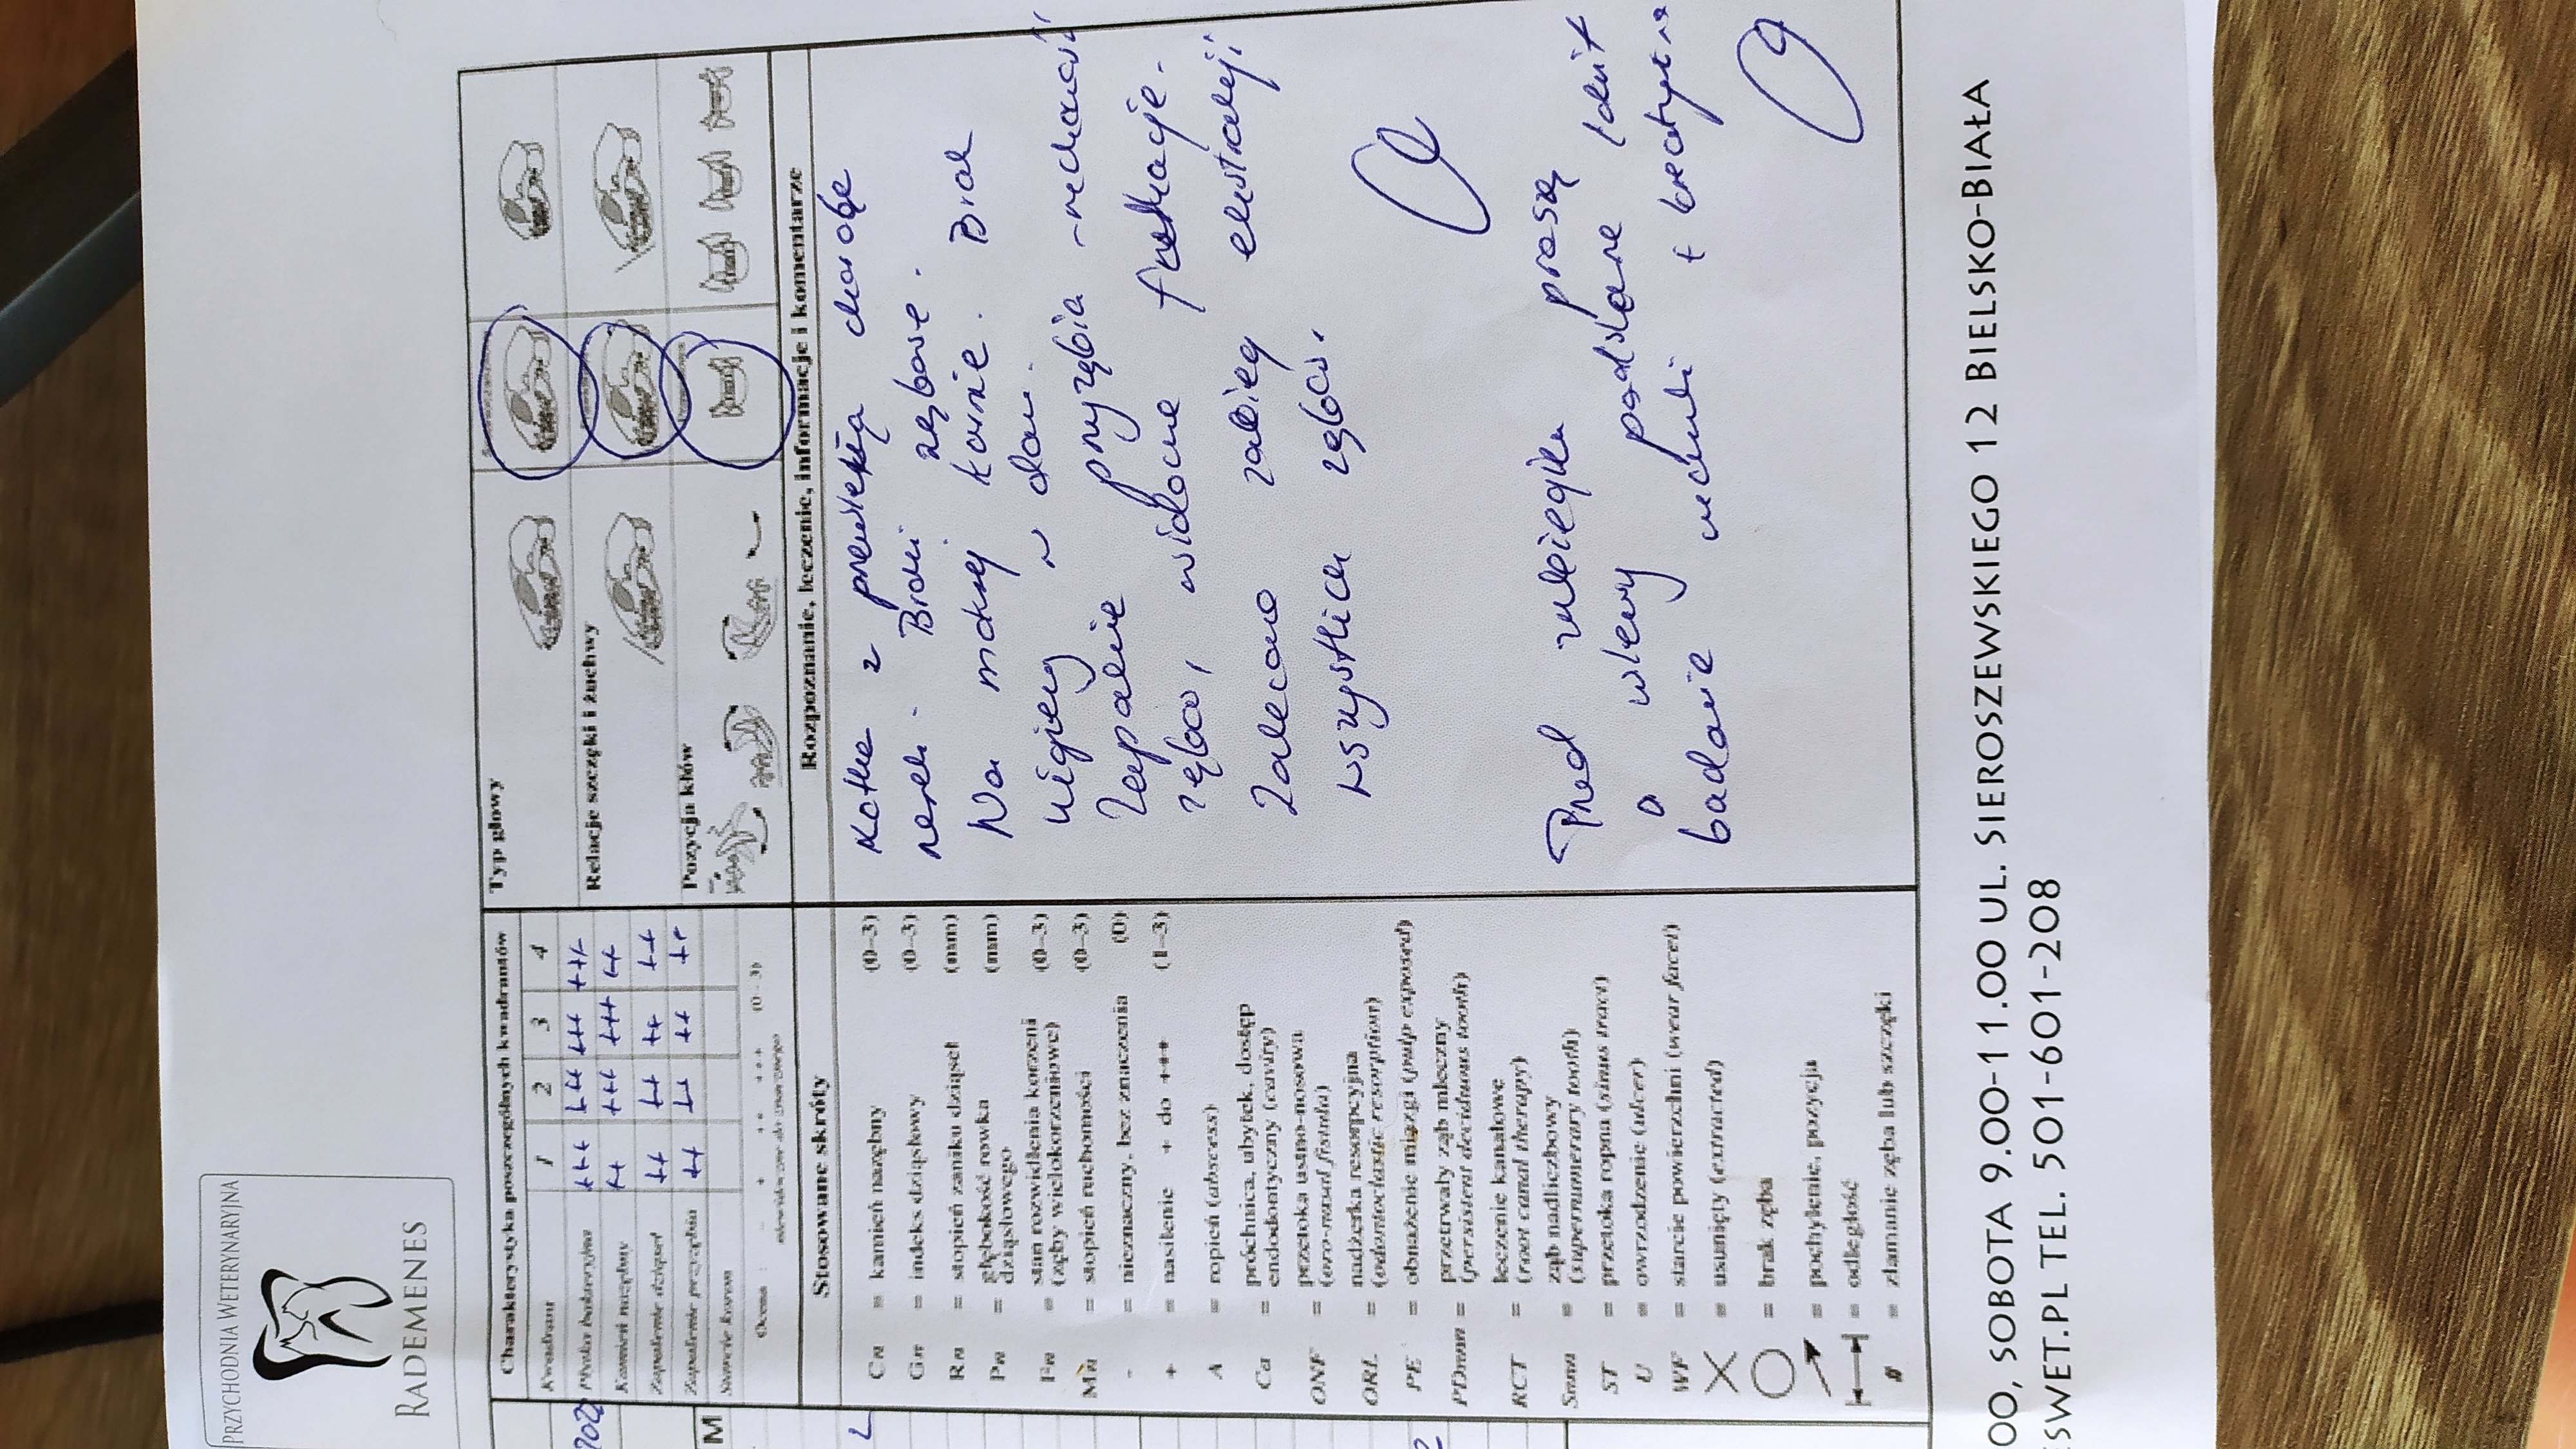 PRZYCHODNIA WETERYNARYJNA
RADEMENES
Charakterystyka poszczególnych kwadrantów
Kwadrant 1 2 3 4
Płytka bakteryjna +++ +++ +++ +++
Kamień nazębny ++ +++ +++ ++
Zapalenie dziąseł ++ ++ ++ ++
Zapalenie przyzębia ++ ++ ++ ++
Starcie koron
Ocena : - + ++ +++ (0 - 3)
Typ głowy
Relacje szczęki i żuchwy
Pozycja kłów
Stosowane skróty
Cn = kamień nazębny (0-3)
Gn = indeks dziąsłowy (0-3)
Rn = stopień zaniku dziąseł (mm)
Pn = głębokość rowka dziąsłowego (mm)
Fn = stan rozwidlenia korzeni (0-3)
(zęby wielokorzeniowe)
Mn = stopień ruchomości (0-3)
- = nieznaczny, bez znaczenia (0)
+ = nasilenie + do +++ (1-3)
A = ropień (absces)
Ca = próchnica, ubytek, dostęp
endodontyczny (cavity)
ONF = przetoka ustno-nosowa
(oro-nasal fistula)
ORL = nadżerka resorpcyjna
(odontoclastic resorption)
PE = obnażenie miazgi (pulp exposed)
PDnnn = przetrwały ząb mleczny
(persistent deciduous tooth)
RCT = leczenie kanałowe
(root canal therapy)
Snnn = ząb nadliczbowy
(supernumerary tooth)
ST = przetoka ropna (sinus tract)
U = owrzodzenie (ulcer)
WF = starcie powierzchni (wear facet)
X = usunięty (extracted)
O = brak zęba
= pochylenie, pozycja
= odległość
# = złamanie zęba lub szczęki
Rozpoznanie, leczenie, informacje i komentarze
Kotka z przewlekłą chorobę
nerek. Braki zębowe.
Na mokrej karmie. Brak
higieny w domu.
Zapalenie przyzębia - ruchomość
zębów, widoczne furkacje.
Zalecono zabieg ekstrakcji
wszystkich zębów.
Przed zabiegiem proszę robić
wlewy podskórne
badanie mocznik + kreatynina
M
OO, SOBOTA 9.00-11.00 UL. SIEROSZEWSKIEGO 12 BIELSKO-BIAŁA
ESWET.PL TEL. 501-601-208